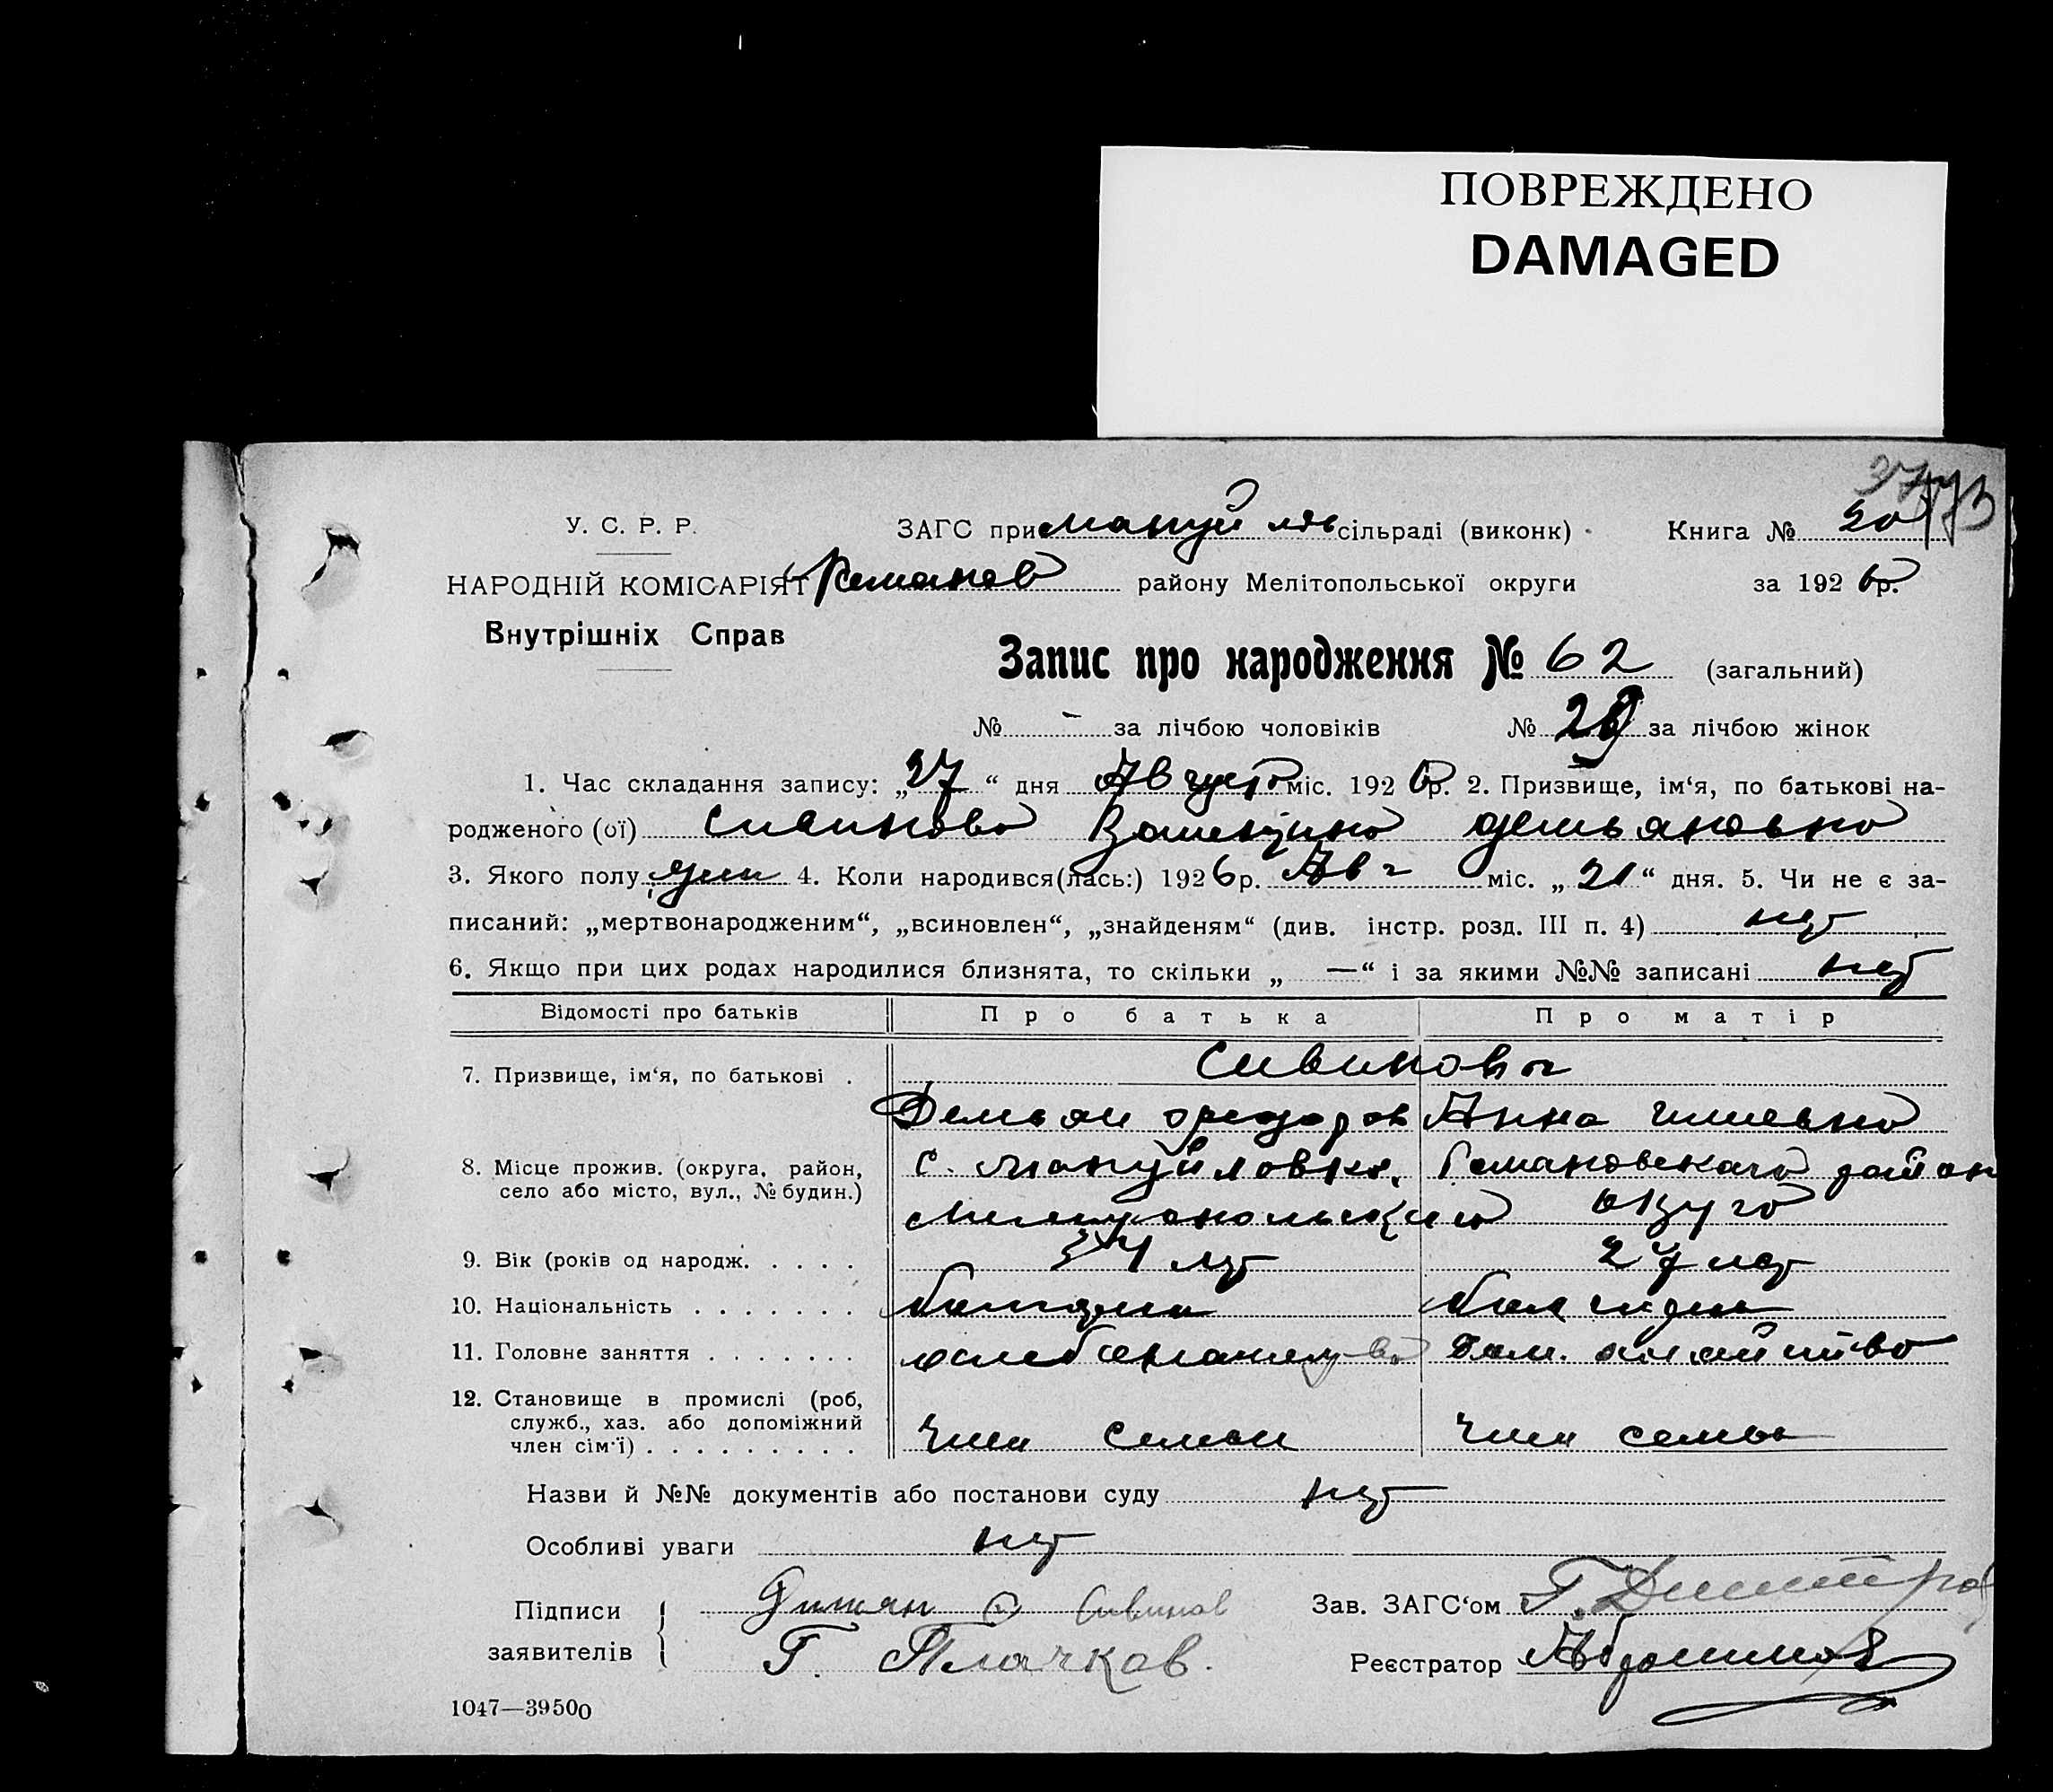 ПОВРЕЖДЕНО
DAMAGED
У. С. Р. Р. ЗАГС при Мануйлов сільраді (виконк) Книга № 20
НАРОДНІЙ КОМІСАРІЯТ Романов району Мелітопольської округи за 1926р.
Внутрішніх Справ
Запис про народження № 62 (загальний)
№ - за лічбою чоловіків № 29 за лічбою жінок
1. Час складання запису: „27“ дня Август міс. 1926р. 2. Призвище, ім‘я, по батькові на-
родженого (ої) Сивинова Демьяновна
3. Якого полу жен 4. Коли народився(лась:) 1926р. Авг міс. „21“ дня. 5. Чи не є за-
писаний: „мертвонародженим“, „всиновлен“, „знайденям“ (див. інстр. розд. III п. 4) нет
6. Якщо при цих родах народилися близнята, то скільки „ —“ і за якими №№ записані нет
Відомості про батьків Про батька Про матір
7. Призвище, ім‘я, по батькові . Сивиновы
Демьян Федоров Анна
8. Місце прожив. (округа, район, с. Мануйловка, Романовского район
село або місто, вул., № будин.)
Мелитопольской округа
9. Вік (років од народж. . . . . 34 лет 27 лет
10. Національність . . . . . . . болгарин болгарка
11. Головне заняття . . . . . . . хлебопашество дом. хозяйство
12. Становище в промислі (роб,
служб., хаз. або допоміжний
член сім‘ї) . . . . . . . . . член семьи член семьи
Назви й №№ документів або постанови суду нет
Особливі уваги нет
Підписи Димян Ф Сивинов Зав. ЗАГС‘ом Г. Димитров
заявителів Г. Плачков. Реєстратор Абросимов
1047—39500